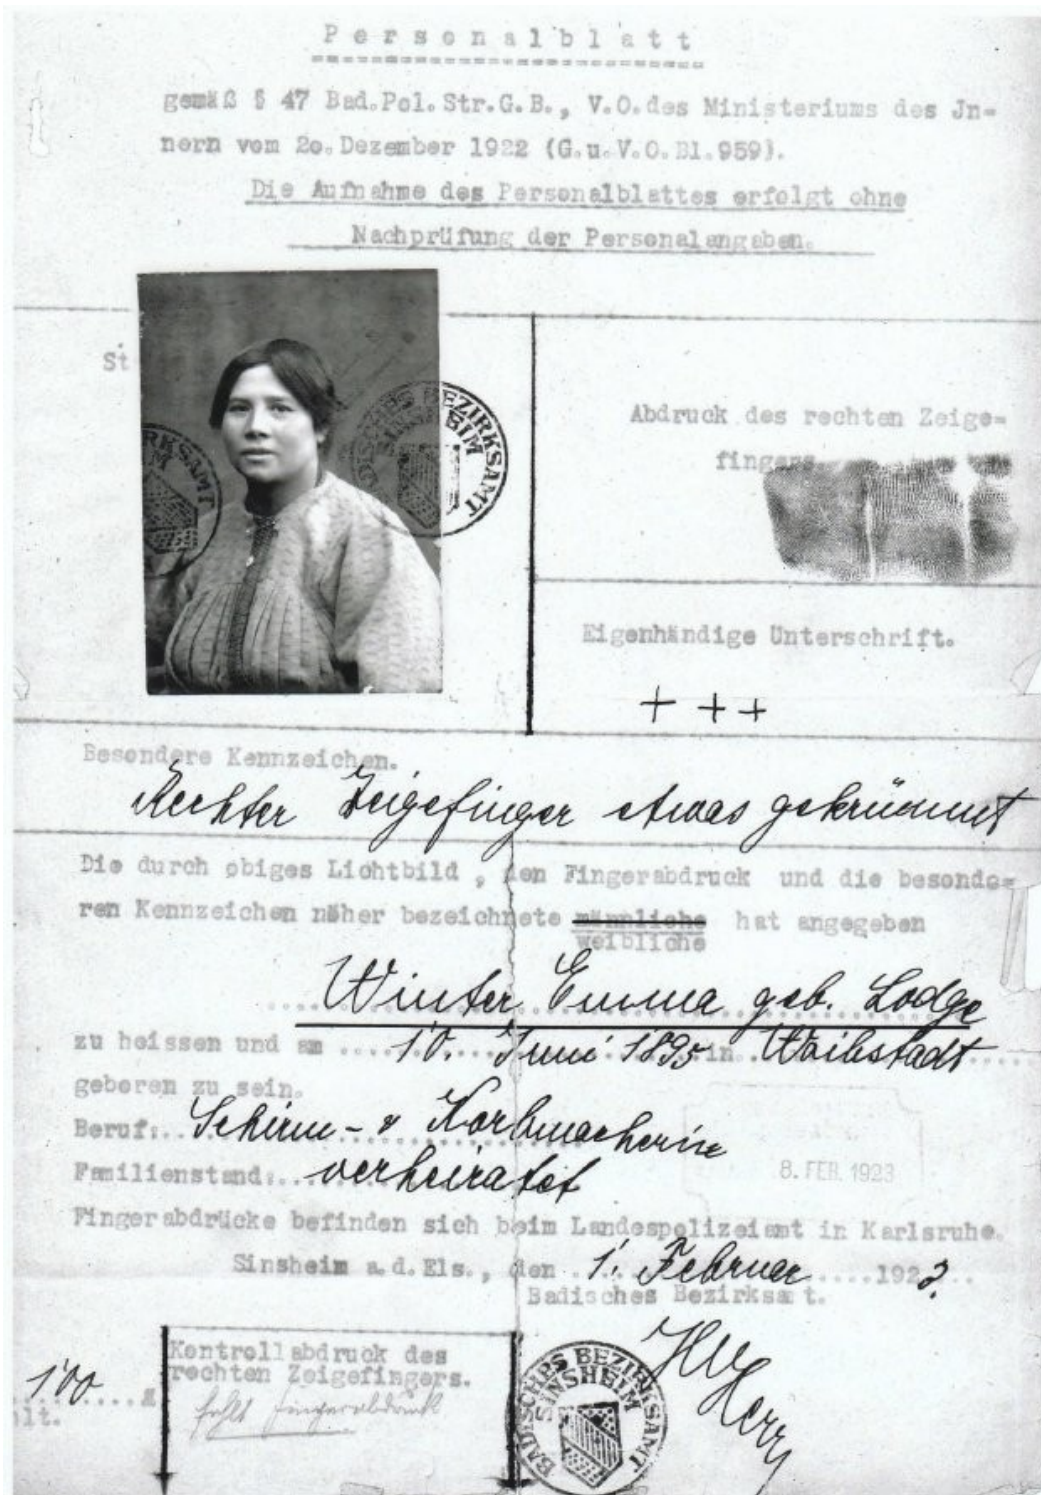 Personalblatt
gemäß § 47 Bad.Pol.Str.G.B., V.O.des Ministeriums des Jn-
nern vom 2o.Dezember 1922 (G.u.V.O.Bl.959).
Die Aufnahme des Personalblattes erfolgt ohne
Nachprüfung der Personalangaben.
St
BEZIRKSAMT
BADISCHES BEZIRKSAMT
SINSHEIM
Abdruck des rechten Zeige-
fingers
Eigenhändige Unterschrift.
+ + +
Besondere Kennzeichen.
Rechter Zeigefinger etwas gekrümmt
Die durch obiges Lichtbild , den Fingerabdruck und die besonde-
ren Kennzeichen näher bezeichnete männliche hat angegeben
weibliche
Winter Emma geb. Lodge
zu heissen und am 10. Juni 1895 in Waibstadt
geboren zu sein.
Beruf: Schirm- u Korbmacherin
Familienstand: verheiratet
8. FEB. 1923
Fingerabdrücke befinden sich beim Landespolizeiamt in Karlsruhe.
Sinsheim a.d.Els., den 1. Februar 1923.
Badisches Bezirksamt.
Kontrollabdruck des
rechten Zeigefingers.
100 M
lt.
fehlt Fingerabdruck
BADISCHES BEZIRKSAMT
SINSHEIM
Herr